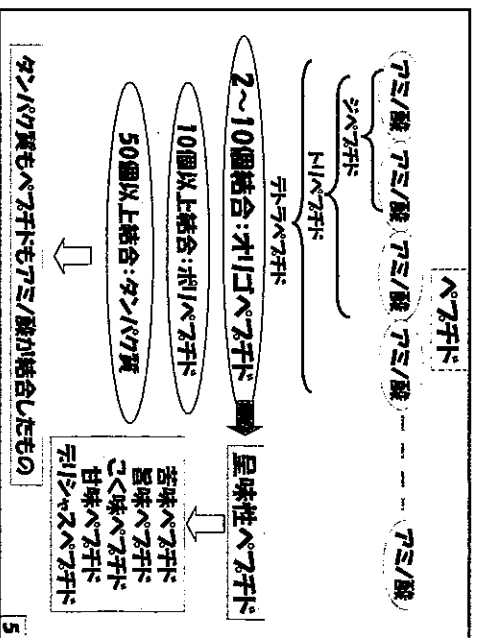 ペプチド
アミノ酸 アミノ酸 アミノ酸 アミノ酸 - - - - アミノ酸
ジペプチド
トリペプチド
テトラペプチド
2～10個結合:オリゴペプチド
呈味性ペプチド
10個以上結合:ポリペプチド
50個以上結合:タンパク質
苦味ペプチド
旨味ペプチド
こく味ペプチド
甘味ペプチド
デリシャスペプチド
タンパク質もペプチドもアミノ酸が結合したもの
5